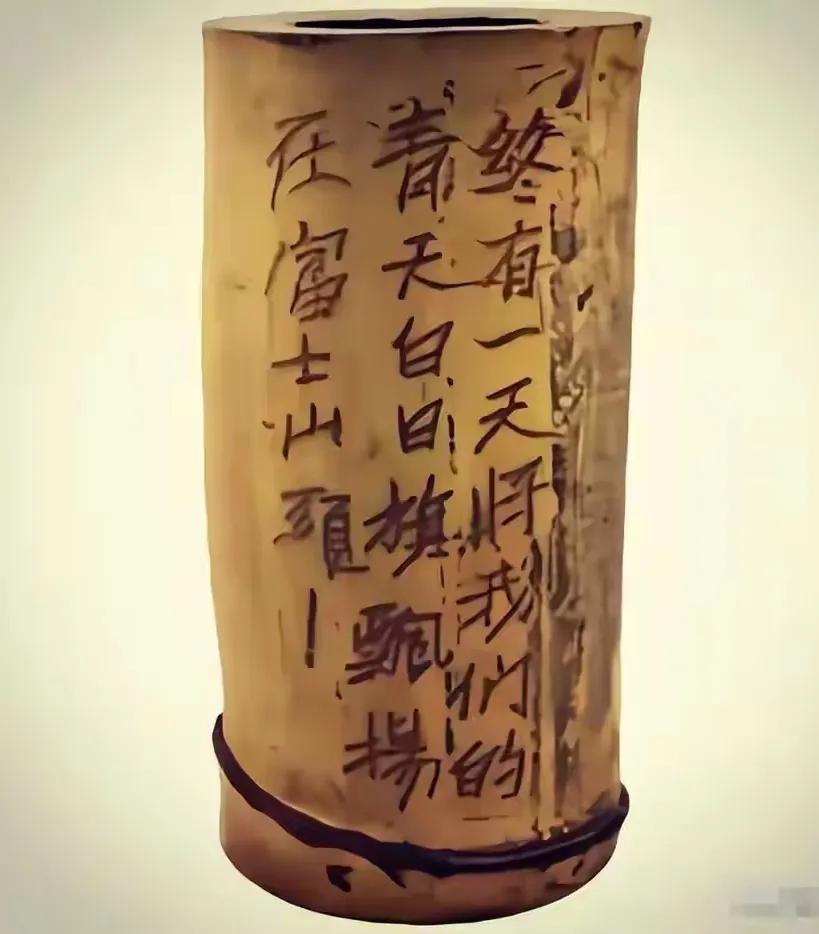 終有一天將我们的
青天白日旗飄揚
在富士山頭！